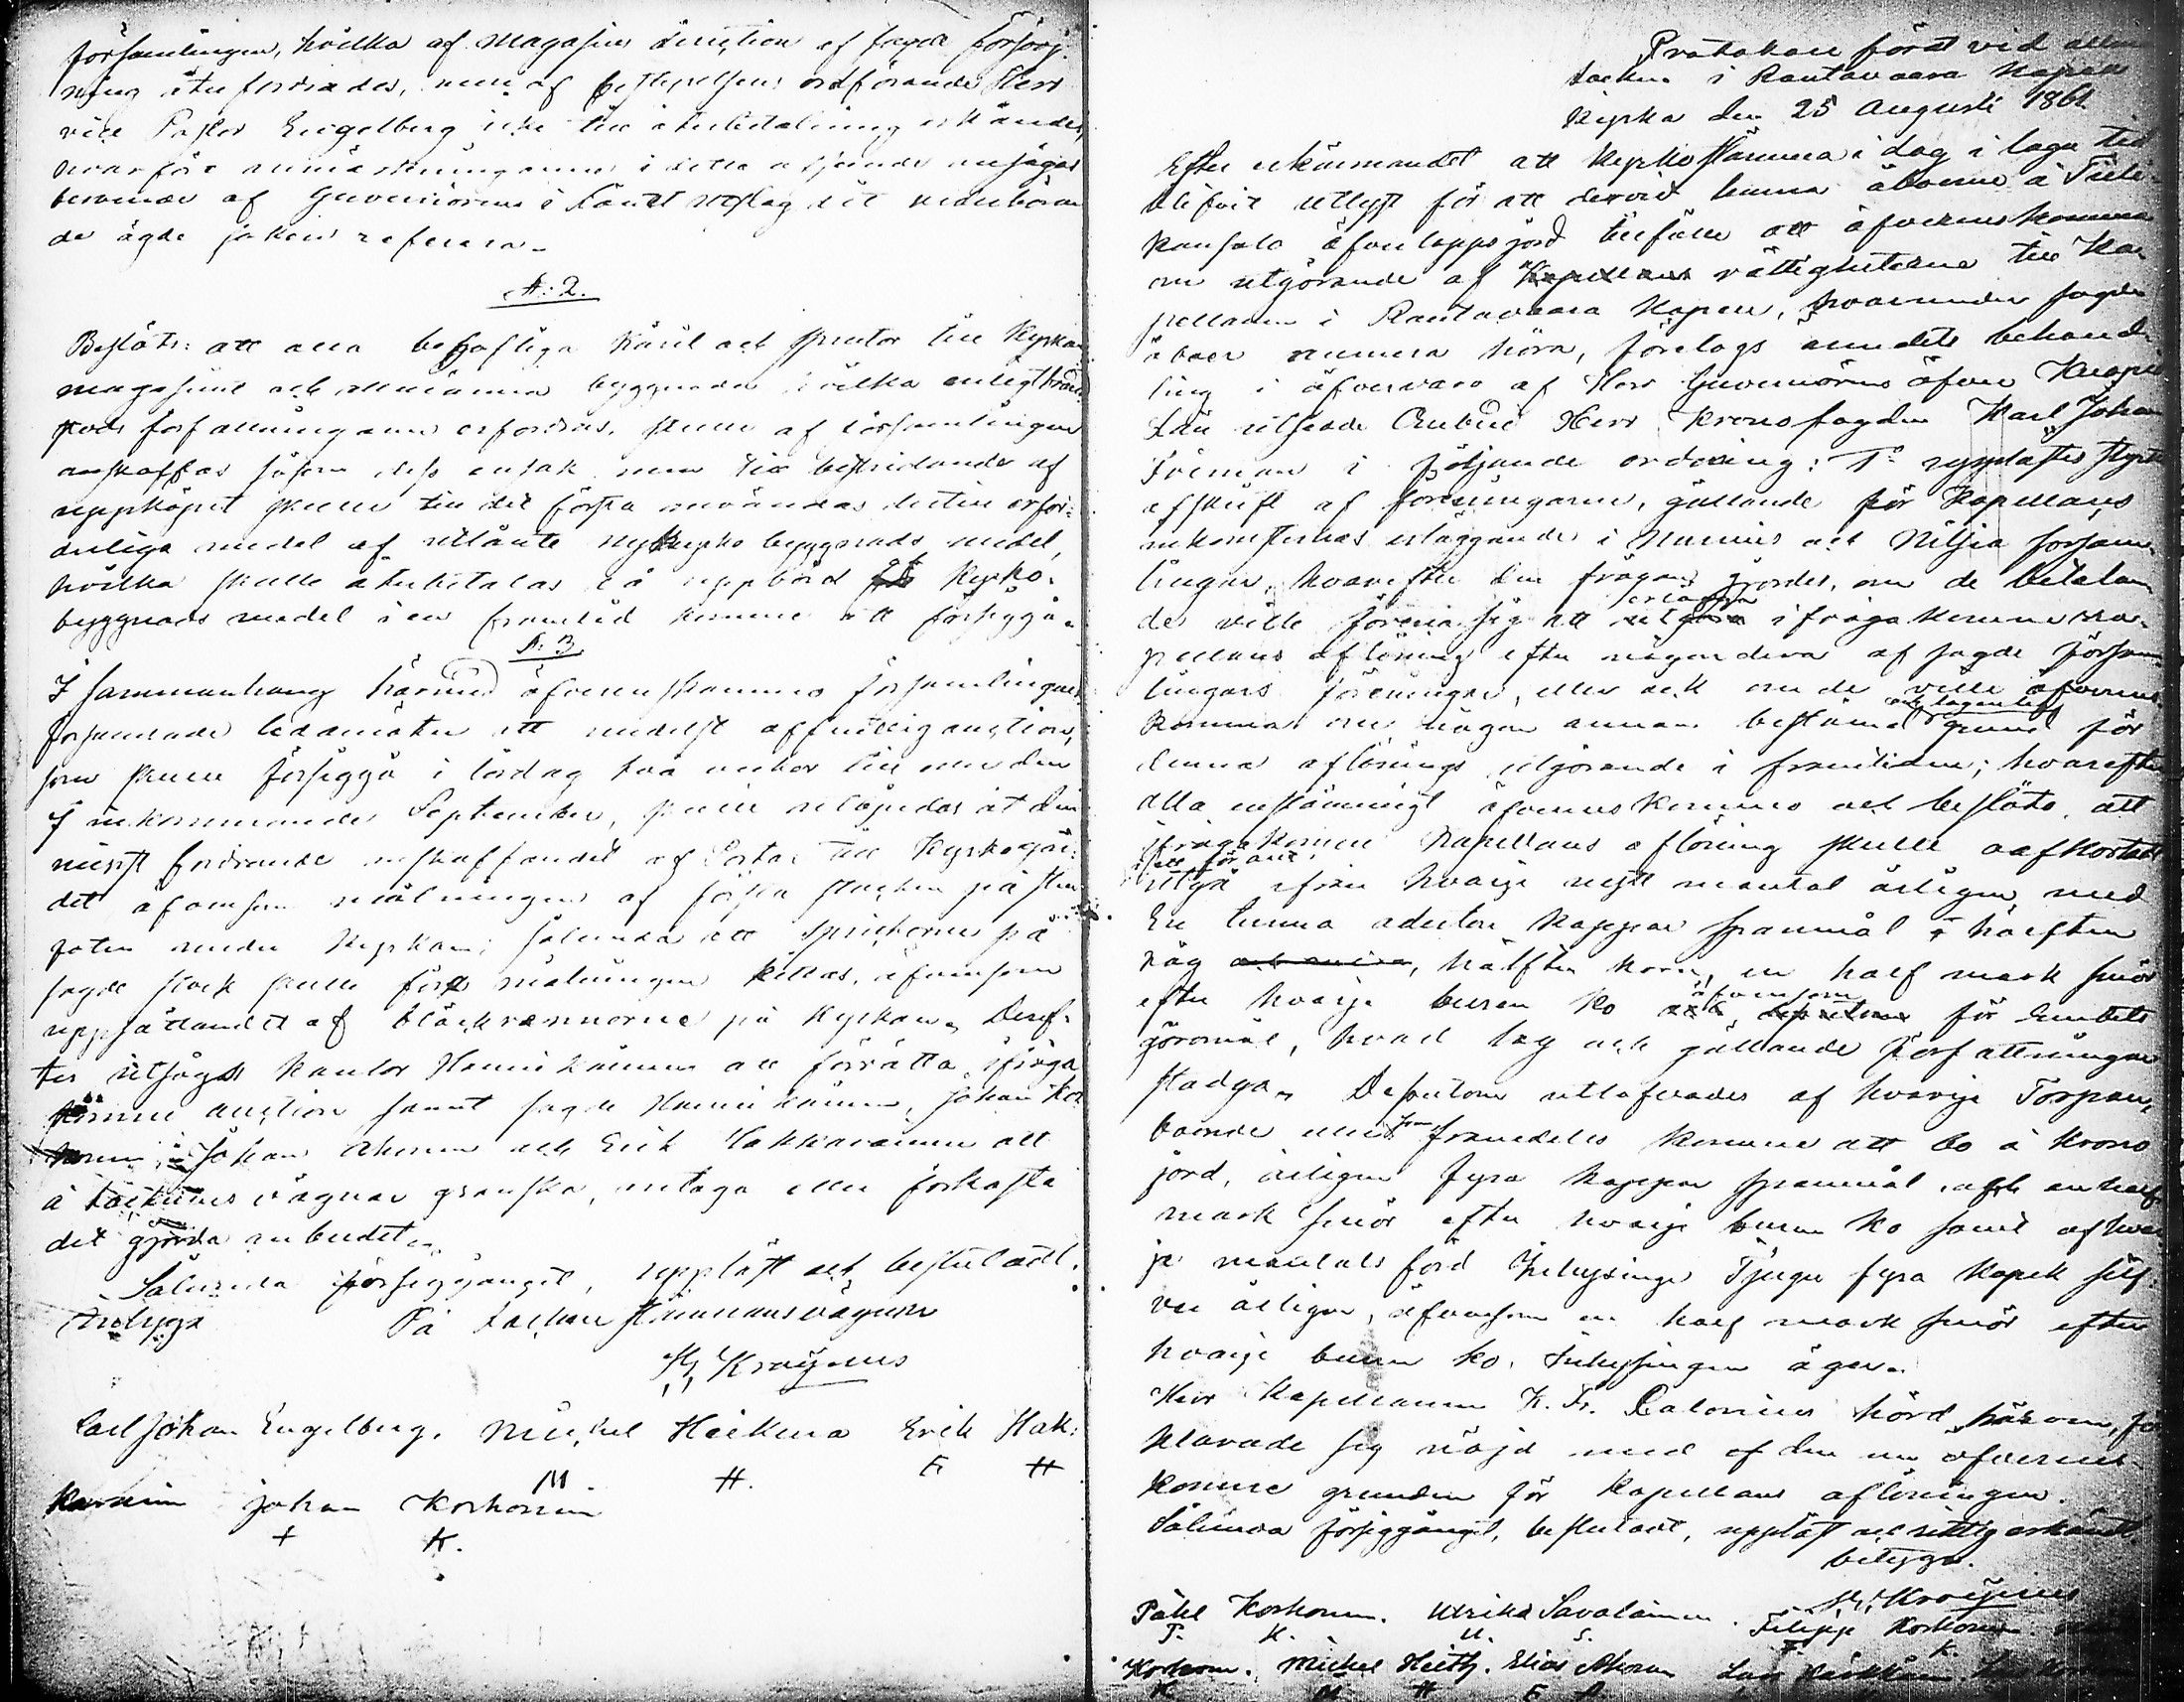 församlingen, hvilka af Magasins direction af sagde försörj-
ning återfordrades, men af bestyrelsens ordförande Herr
vice Pastor Engelberg icke till återbetalning erkändes,
hvarföre anmärkningarne i detta afseende
af Guvernören i Länet
de ägde saken referera.
§. 2.
Beslöts: att alla behöfliga käril och sprutor till Kyrkan
magasinet och allmänna byggnader hvilka enligt brand
författningarne erfordras, skulle af församlingen
anskaffas såsom dess ensak men till bestridande af
uppköpet skulle till det första användas dertill erfor-
derliga medel af utlånte nykyrko byggnads medel,
hvilka skulle återbetalas då uppbörd Kyrko-
byggnads medel i en framtid komme att försiggå.
§. 3.
I sammanhang härmed öfverenskommo församlingens
församlade ledamöter att medelst offentlig auction,
som skulle försiggå i lördag två veckor till om den
7 inkommande September, skulle utbjudas åt den
minst fordrande anskaffandet af Portar till Kyrkogår-
det äfvensom målningen af första stocken på sten
foten under Kyrkan; sålunda att springorne på
sagde stock skulle före målningen kittas, äfvensom
uppsättandet af bläckrännorne på Kyrkan. Deref-
ter utsågs Kantor Hannikainen att förrätta ifråga
komne auction samt sagde Hannikainen, Johan Kor
honen, Johan Ahonen och Erik Hakkarainen att
å Socknens vägnar granska, antaga eller förkasta
det gjorda anbudet.
Sålunda försiggånget, uppläst och beslutadt,
betyga På Socknestämmans vägnar
Kroijerus
Carl Johan Engelberg. Michel Heikura Erik Hak-
M H. E H
karainen Johan Korhonen
+ K.
Protokoll fördt vid allmän
Socken i Rautavaara Kapell
Kyrka den 25 Augusti 1861.
Efter erkännandet att Kyrkostämma i dag i laga tid
blifvit utlyst för att dervid kunna åboerne å Tiili-
kansalo öfverloppsjord tillfälle att öfverenskomma
om utgörande af Kapellans rättigheterne till Ka-
pellanen i Rautavaara Kapell, hvarunder sagde
åboer numera höra, företogs ämnets behand-
ling i öfvervaro af Herr Guvernörens öfver Kuopio
Län utsedde Ombud Herr Kronofogden Karl Johan
Toiman i följande ordning: 1o upplästes styrkt
afskrift af föreningarne, gällande för Kapellans
inkomsternas erläggande i Nurmis och Nilsiä försam-
lingar, hvarefter den frågan gjordes, om de betalan-
de ville förena sig att erlägga utgöra ifrågakomne Ka-
pellans aflöning efter någondera af sagde försam-
lingars föreningar, eller ock om de ville öfverens-
komma om någon annan bestämd och lagenlig grund för
denna aflönings utgörande i framtiden; hvarefter
alla enstämmigt öfverenskommo och beslöto, att
ifrågakomne Kapellans aflöning skulle oafkortadt
utgå ifrån hvarje nytt mantal årligen, med
En tunna aderton kappar spannmål hälften
råg och mera, hälften korn, en half mark smör
efter hvarje buren ko och äfvensom för Embets
göromål, hvad lag och gällande författningar
stadga. Dessutom utlofvades af hvarje Torpare,
boende eller som framdeles komme att bo å Krono
jord, årligen fyra kappar spannmål och en half
mark smör efter hvarje buren ko samt af hvar
je mantals förd Inhysinge Tjugu fyra kopek silf-
ver årligen, äfvensom en half mark smör efter
hvarje buren ko, Inhysingen äger.
Herr Kapellanen K. Fr. Calonius hörd härom, för
klarade sig nöjd med af den nu öfverens-
komne grunden för Kapellans aflöningen.
Sålunda försiggånget, beslutadt, uppläst och riktig erkändt
betyga.
Kroijerus
Påhl Korhonen. Ulrika Savolainen. Filipp Korhonen
P. K. U. S. F. K.
Korhonen. Michel Heitz. Elias Ahonen Lars Kärkkäinen
K M H E A.